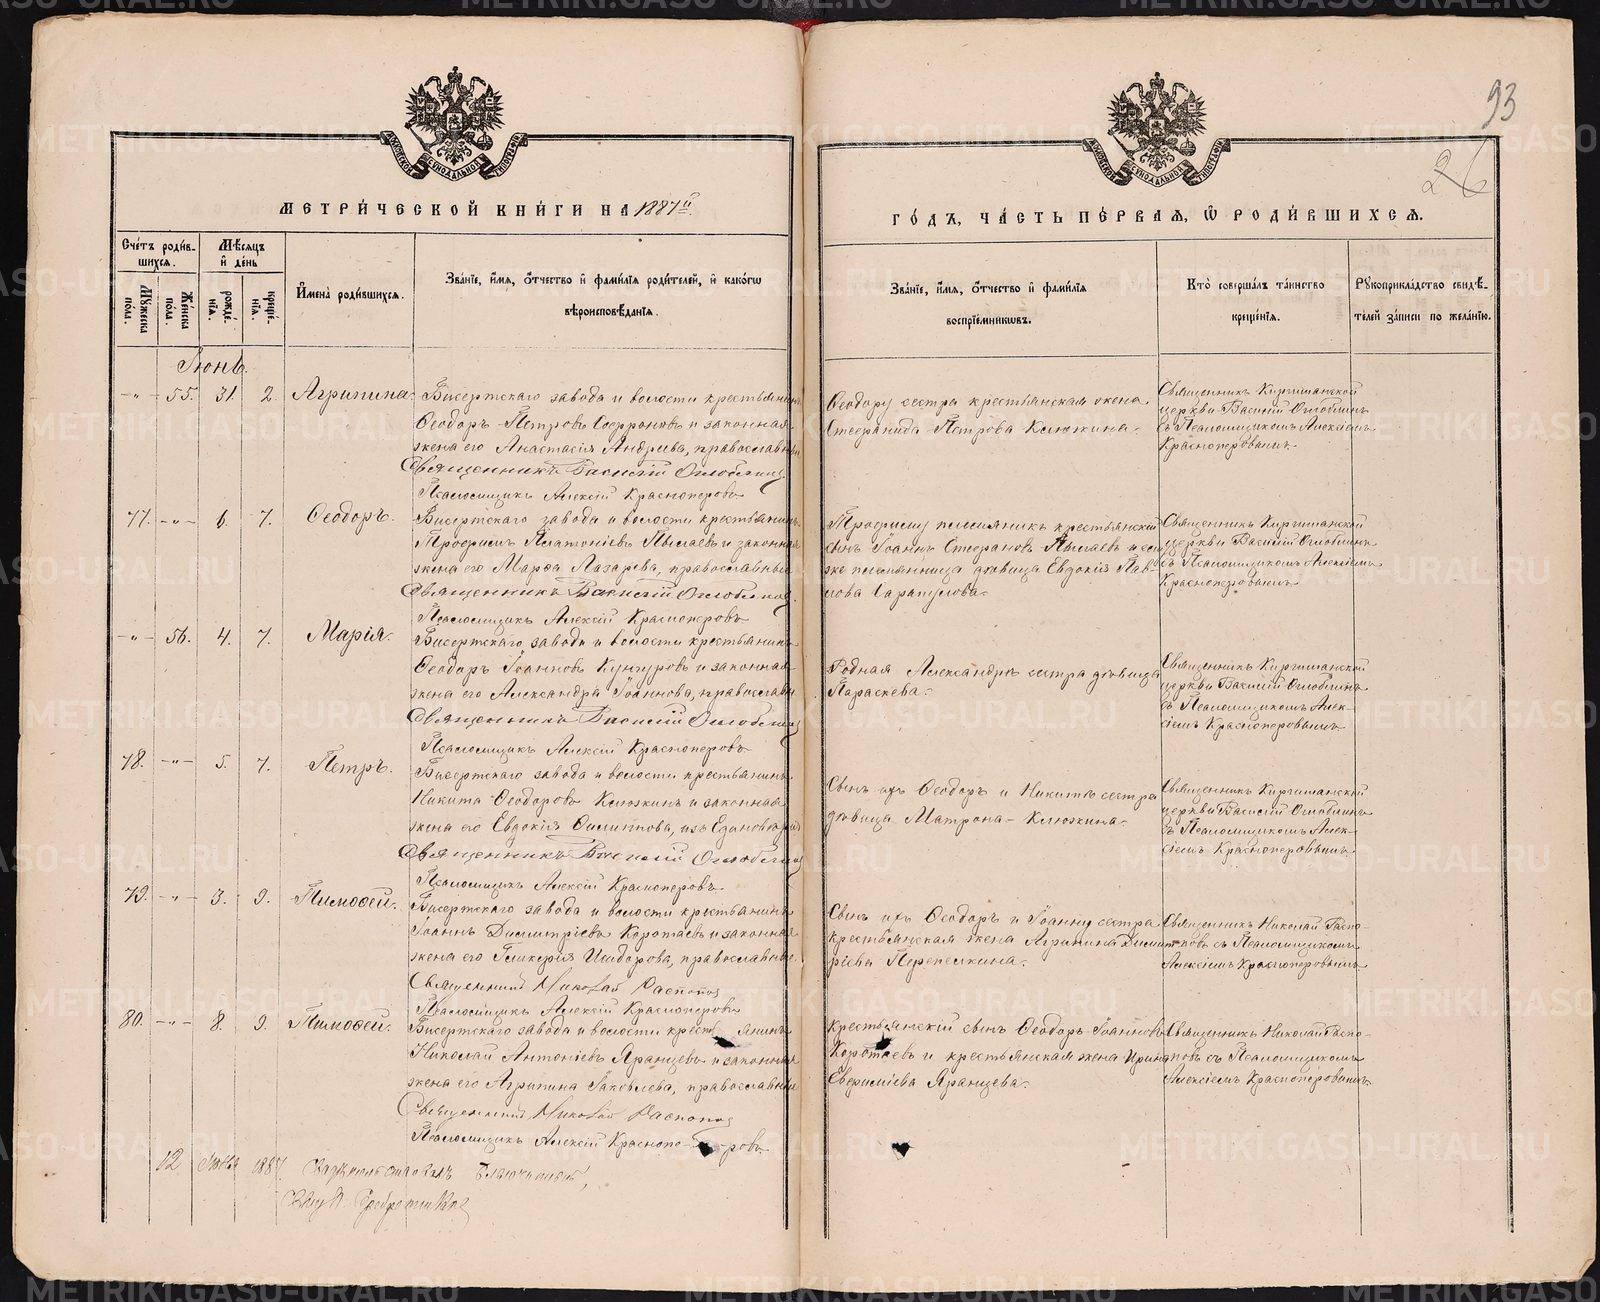 93
26
МЕТРИ́ЧЕСКОЙ КНИ́ГИ НА 1887й
ГО́ДЪ, ЧА́СТЬ ПЕ́РВАЯ, Ѡ РОДИ́ВШИХСЯ.
Сче́тъ роди́вшихся.
Мѣ́сяцъ и҆ де́нь
Мꙋжеска пола.
Же́нска пола.
рожде́нїя.
креще́нїя.
И҆мена̀ роди́вшихся.
Зва́нїе, и҆́мя, ѻ҆́тчество и҆ фами́лїя роди́телей, и҆ како́гѡ вѣроисповѣ́данїя.
Зва́нїе, и҆́мя, ѻ҆́тчество и҆ фами́лїя воспрїе́мникѡвъ.
Кто̀ соверша́лъ та́инство креще́нїя.
Рꙋкоприкла́дство свидѣ́телей за́писи по жела́нїю.
Іюнь.
-"- 55. 31. 2. Агрипина.
Бисертскаго завода и волости крестьянинъ
Ѳеодоръ Петровъ Софроновъ и законная
жена его Анастасія Андреева, православны
Священникъ Василій Оглоблинъ
Псаломщикъ Алексій Красноперовъ
Ѳеодору сестра крестьянская жена
Стефанида Петрова Клюкина.
Священникъ Киргишанской
церкви Василій Оглоблинъ
съ Псаломщикомъ Алексіемъ
Красноперовымъ.
77. -"- 6. 7. Ѳеодоръ.
Бисертскаго завода и волости крестьянинъ
Трофимъ Платоновъ Пылаевъ и законная
жена его Марѳа Лазарева, православные
Священникъ Василій Оглоблинъ.
Псаломщикъ Алексій Красноперовъ
Трофиму племянникъ крестьянскій
сынъ Іоаннъ Стефановъ Пылаевъ и ему
же племянница дѣвица Евдокія Пав-
лова Сарапулова.
Священникъ Киргишанской
церкви Василій Оглоблинъ
съ Псаломщикомъ Алексіемъ
Красноперовымъ
-"- 56. 4. 7. Марія.
Бисертскаго завода и волости крестьянинъ
Ѳеодоръ Іоанновъ Кунгуровъ и законная
жена его Александра Іоаннова, православны
Священникъ Василій Оглоблинъ
Псаломщикъ Алексій Красноперовъ
Родная Александрѣ сестра дѣвица
Параскева.
Священникъ Киргишанской
церкви Василій Оглоблинъ
съ Псаломщикомъ Алек-
сіемъ Красноперовымъ
78. -"- 5. 7. Петръ.
Бисертскаго завода и волости крестьянинъ
Никита Ѳеодоровъ Клюкинъ и законная
жена его Евдокія Филиппова, изъ Единовѣрія
Священникъ Василій Оглоблинъ
Псаломщикъ Алексій Красноперовъ
Сынъ ихъ Ѳеодоръ и Никитѣ сестра
дѣвица Матрона Клюкина.
Священникъ Киргишанской
церкви Василій Оглоблинъ
съ Псаломщикомъ Алек-
сіемъ Красноперовымъ
79. -"- 3. 9. Тимоѳей.
Бисертскаго завода и волости крестьянинъ
Іоаннъ Димитріевъ Коротаевъ и законная
жена его Гликерія Исидорова, православные.
Священникъ Николай Распоповъ
Псаломщикъ Алексій Красноперовъ
Сынъ ихъ Ѳеодоръ и Іоанну сестра
крестьянская жена Агрипина Димит-
ріева Перепелкина.
Священникъ Николай Распо-
повъ съ Псаломщикомъ
Алексіемъ Красноперовымъ
80. -"- 8. 9. Тимоѳей.
Бисертскаго завода и волости крестьянинъ
Николай Антоніевъ Яранцевъ и законная
жена его Агрипина Іаковлева, православны
Священникъ Николай Распоповъ
Псаломщикъ Алексій Красноперовъ
Крестьянскій сынъ Ѳеодоръ Іоанновъ
Коротаевъ и крестьянская жена Ирина
Евфиміева Яранцева.
Священникъ Николай Распо-
повъ съ Псаломщикомъ
Алексіемъ Красноперовымъ
12 1887